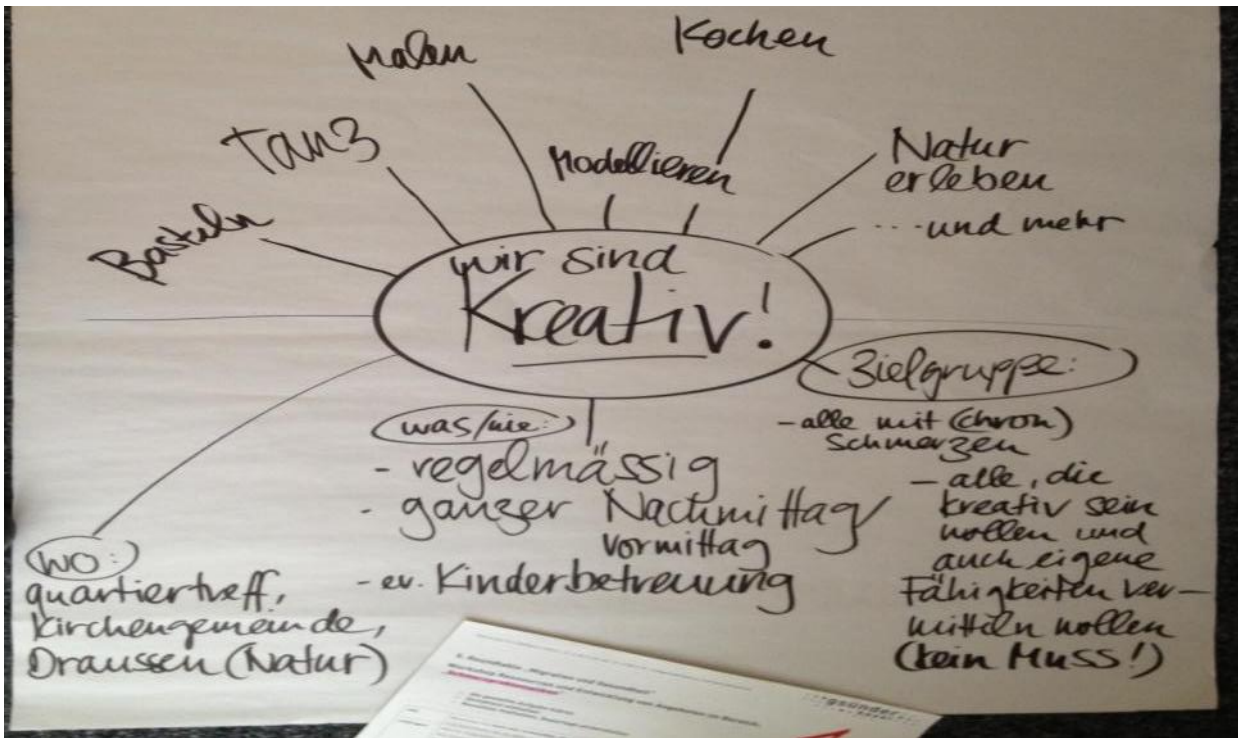 Kochen
Malen
Tanz
Modellieren
Natur
erleben
Basteln
....und mehr
wir sind
Kreativ!
Zielgruppe:
- alle mit (chron)
Schmerzen
- alle, die
kreativ sein
wollen und
auch eigene
Fähigkeiten ver-
mitteln wollen
(kein Muss!)
was/wie:
- regelmässig
- ganzer Nachmittag/
Vormittag
- ev. Kinderbetreuung
wo:
quartiertreff,
Kirchengemeinde,
Draussen (Natur)
"Migration und Gesundheit"
gsünder
basel